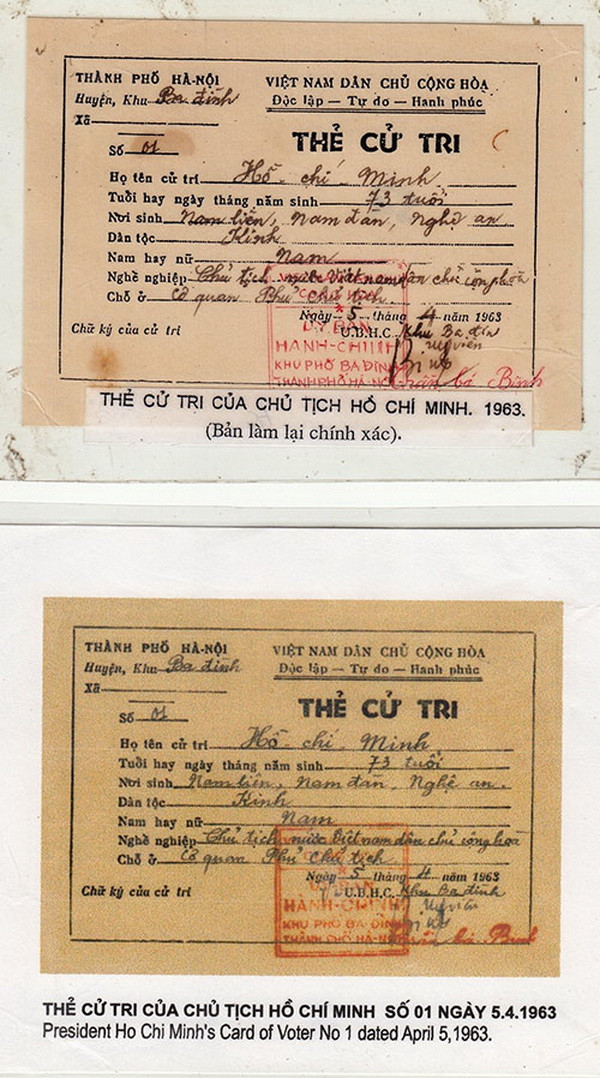 THÀNH PHỐ HÀ-NỘI
VIỆT NAM DÂN CHỦ CỘNG HÒA
Huyện, Khu Ba đình
Độc lập — Tự do — Hạnh phúc
Xã
THẺ CỬ TRI
Số 01
Họ tên cử tri Hồ - chí - Minh
Tuổi hay ngày tháng năm sinh 73 tuổi
Nơi sinh Nam liên, Nam đàn, Nghệ an
Dân tộc Kinh
Nam hay nữ Nam
Nghề nghiệp Chủ tịch nước Việt nam dân chủ cộng hòa
Chỗ ở Cơ quan Phủ chủ tịch
Ngày 5 tháng 4 năm 1963
Chữ ký của cử tri
U.B.H.C. Khu Ba đình
Uỷ viên
ỦY BAN
HÀNH-CHÍNH
KHU PHỐ BA ĐÌNH
THÀNH PHỐ HÀ-NỘI
bá Bình
THẺ CỬ TRI CỦA CHỦ TỊCH HỒ CHÍ MINH. 1963.
(Bản làm lại chính xác).
THÀNH PHỐ HÀ-NỘI
VIỆT NAM DÂN CHỦ CỘNG HÒA
Huyện, Khu Ba đình
Độc lập — Tự do — Hạnh phúc
Xã
THẺ CỬ TRI
Số 01
Họ tên cử tri Hồ - chí - Minh
Tuổi hay ngày tháng năm sinh 73 tuổi
Nơi sinh Nam liên, Nam đàn, Nghệ an.
Dân tộc Kinh
Nam hay nữ Nam
Nghề nghiệp Chủ tịch nước Việt nam dân chủ cộng hoà
Chỗ ở Cơ quan Phủ chủ tịch
Ngày 5 tháng 4 năm 1963
Chữ ký của cử tri
U.B.H.C. Khu Ba đình
Uỷ viên
ỦY BAN
HÀNH-CHÍNH
KHU PHỐ BA ĐÌNH
THÀNH PHỐ HÀ-NỘI
bá Bình
THẺ CỬ TRI CỦA CHỦ TỊCH HỒ CHÍ MINH SỐ 01 NGÀY 5.4.1963
President Ho Chi Minh's Card of Voter No 1 dated April 5,1963.